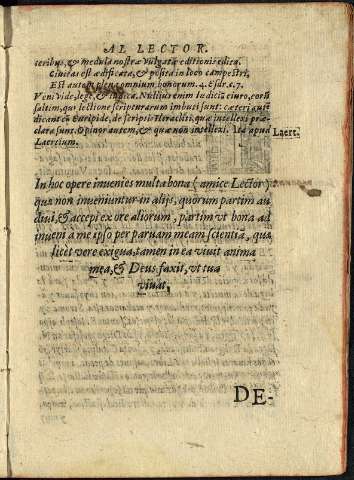 AL LECTOR.
teribus, & medula nostræ vulgatæ editionis edita.
Civitas est ædificata, & posita in loco campestri,
Est autem plena omnium bonorum. 4. Esdr. c. 7.
Veni vide, lege, & indica. Nullius enim iudiciũ curo, eorũ
saltim, qui lectione scripturarum imbuti sunt: cæteri autẽ
dicant cũ Euripide, de scriptis Heracliti. quæ intellexi præ-
clara sunt. Opinor autem, & quæ non intellexi. Ita apud
Laertium.
Laert.
In hoc opere invenies multa bona (amice Lector)
quæ non inveniuntur in alijs, quorum partim au
divi, & accepi ex ore aliorum, partim vt bona ad
inveni à me ipso per parvam meam scientiã, quæ
licet vere exigua, tamen in ea vivit anima
mea, & Deus faxit, vt tua
vivat.
DE-